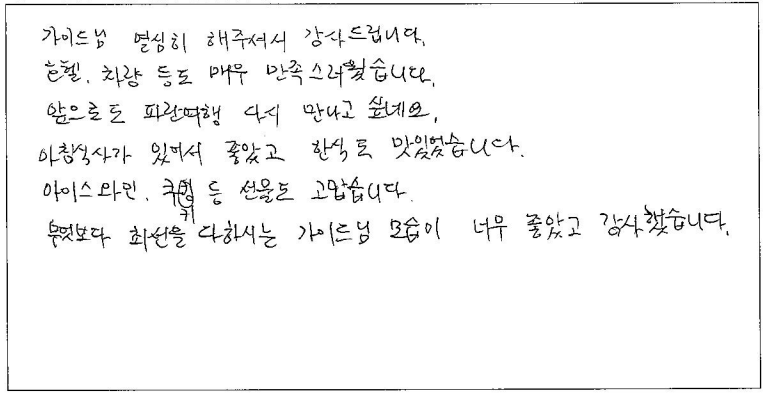 가이드님 열심히 해주셔서 감사드립니다.
호텔, 차량 등도 매우 만족스러웠습니다.
앞으로도 파란여행 다시 만나고 싶네요.
아침식사가 있어서 좋았고 한식도 맛있었습니다.
아이스와인, 쿠키 등 선물도 고맙습니다.
무엇보다 최선을 다하시는 가이드님 모습이 너무 좋았고 감사했습니다.